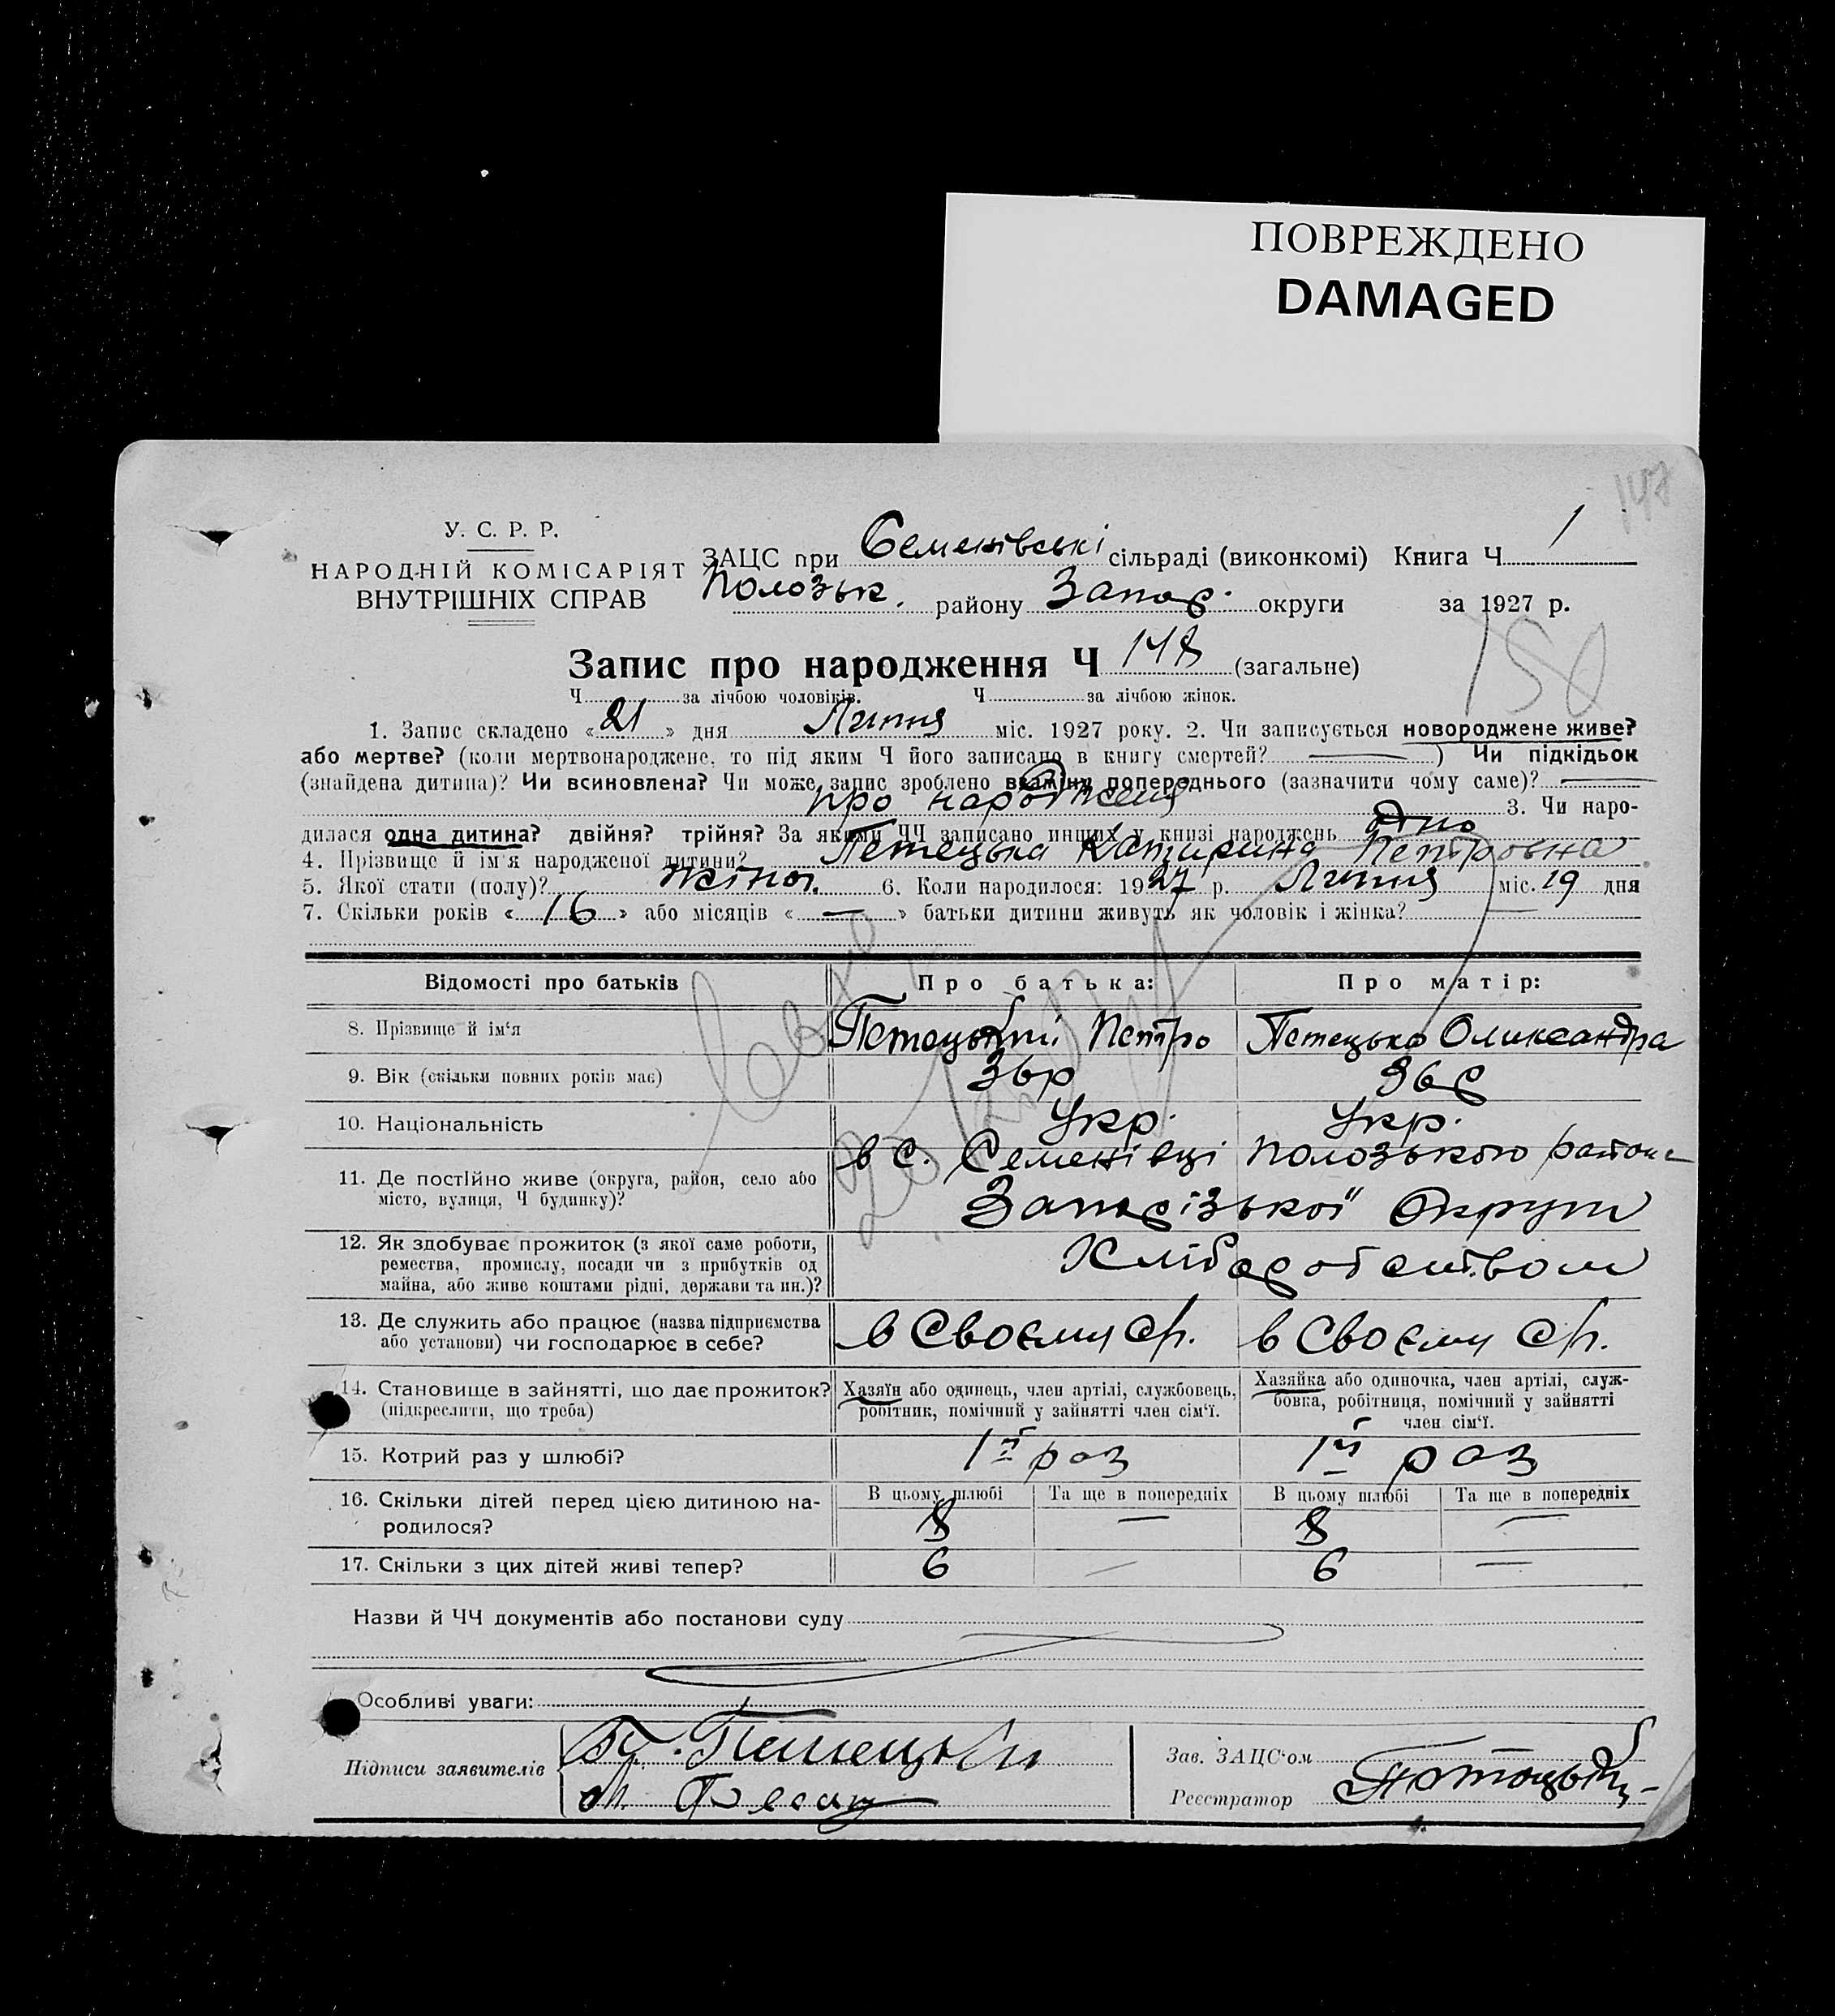 ПОВРЕЖДЕНО
DAMAGED
147
У. С. Р. Р.
НАРОДНІЙ КОМІСАРІЯТ
ВНУТРІШНІХ СПРАВ
ЗАЦС при Семенівські сільраді (виконкомі) Книга Ч. 1
Полозьк. району Запор. округи за 1927 р.
Запис про народження Ч 148 (загальне)
150
Ч. за лічбою чоловіків. Ч. за лічбою жінок.
1. Запис складено «21» дня Липня міс. 1927 року. 2. Чи записується новороджене живе?
або мертве? (коли мертвонароджене, то під яким Ч його записано в книгу смертей? —) Чи підкідьок
(знайдена дитина)? Чи всиновлена? Чи може запис зроблено взаміну попереднього (зазначити чому саме)? —
про народженя 3. Чи наро-
дилася одна дитина? двійня? трійня? За якими ЧЧ записано инших у книзі народжень одно
4. Прізвище й ім'я народженої дитини? Петецька Катирина Петровна
5. Якої стати (полу)? жіноі. 6. Коли народилося: 1927 р. Липня міс. 19 дня
7. Скільки років «16» або місяців «—» батьки дитини живуть як чоловік і жінка?
Відомості про батьків Про батька: Про матір:
8. Прізвище й ім'я Петецький Петро Петецька Олександра
9. Вік (скільки повних років має) 36р 36р
10. Національність Укр. Укр.
11. Де постійно живе (округа, район, село або в с. Семенівці Полозького району
місто, вулиця, Ч будинку)? Запорізької Округи
12. Як здобуває прожиток (з якої саме роботи,
ремества, промислу, посади чи з прибутків од Хліборобством
майна, або живе коштами рідні, держави та ин.)?
13. Де служить або працює (назва підприємства в своєму ср. в своєму ср.
або установи) чи господарює в себе?
14. Становище в зайнятті, що дає прожиток? Хазяїн або одинець, член артілі, службовець, Хазяйка або одиночка, член артілі, служ-
(підкреслити, що треба) робітник, помічний у зайнятті член сім'ї. бовка, робітниця, помічний у зайнятті
член сім'ї.
15. Котрий раз у шлюбі? 1й раз 1й раз
16. Скільки дітей перед цією дитиною на- В цьому шлюбі Та ще в попередніх В цьому шлюбі Та ще в попередніх
родилося? 8 — 8 —
17. Скільки з цих дітей живі тепер? 6 — 6 —
Назви й ЧЧ документів або постанови суду
Особливі уваги:
Підписи заявителів
Петецький
Зав. ЗАЦС'ом
Реєстратор